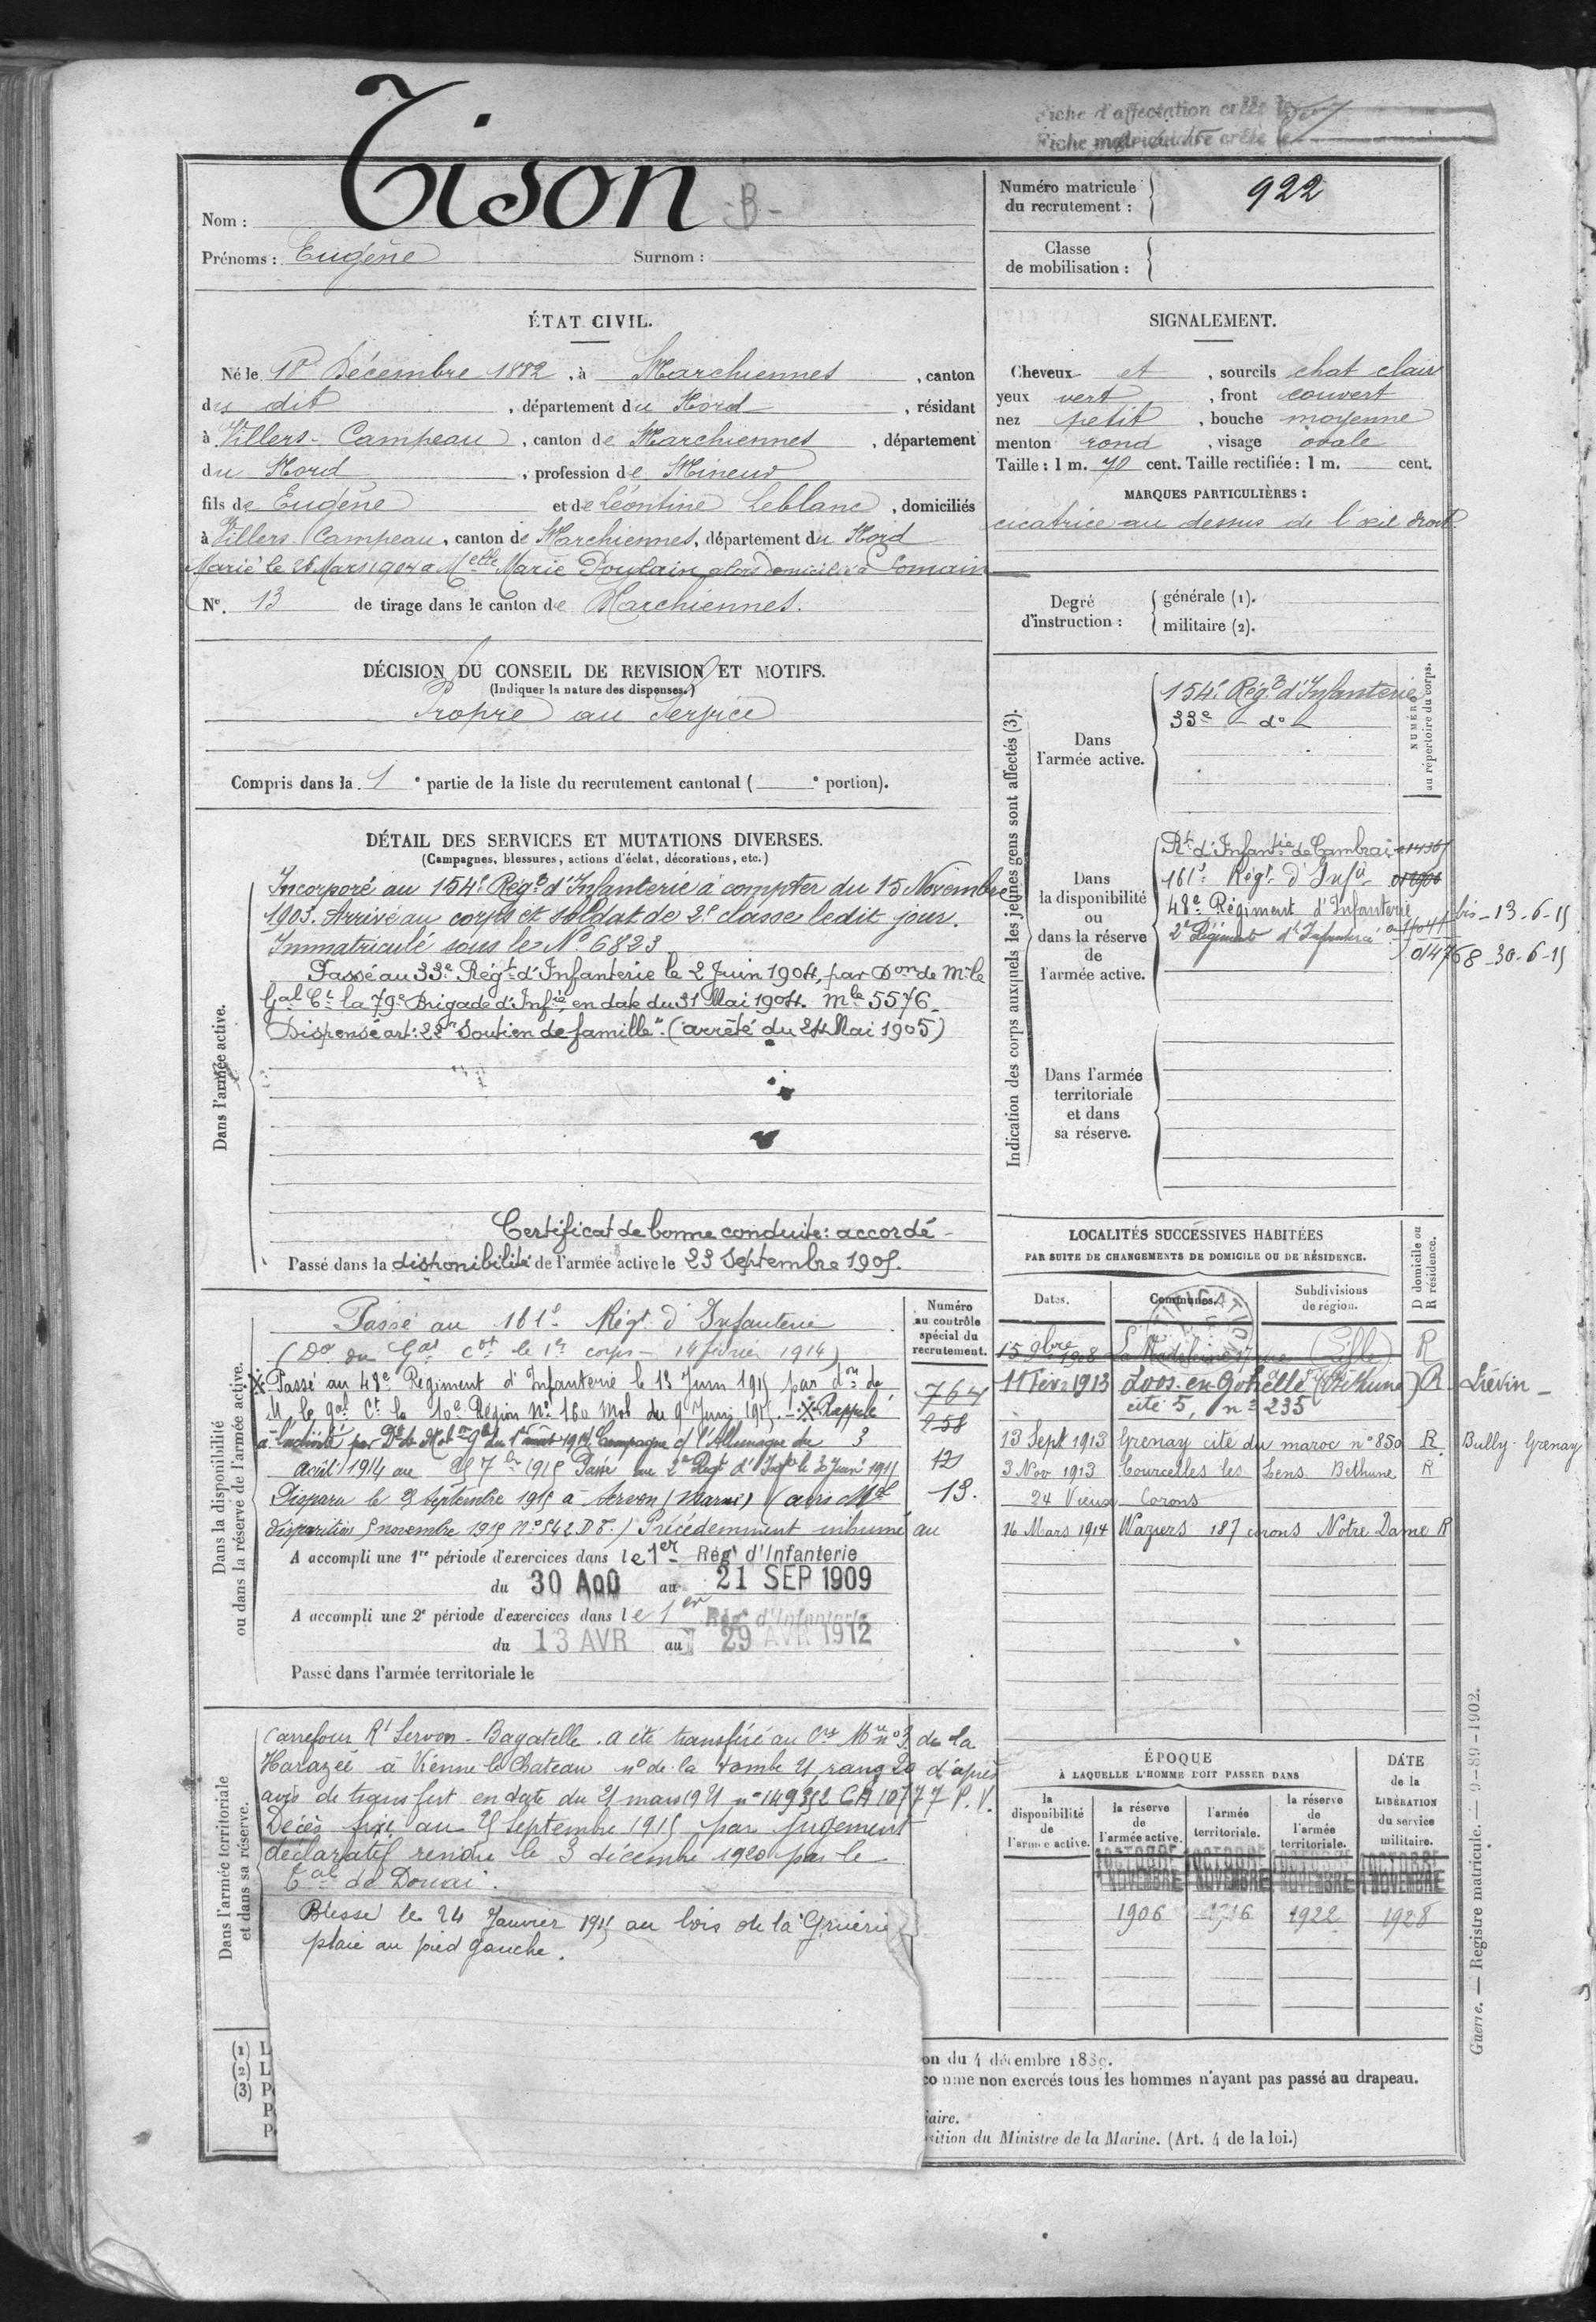 Fiche d'affectation créée le
Fiche matriculaire créée le
Nom : Tison -B-
Prénoms : Eugène Surnom :
Numéro matricule du recrutement : 922
Classe de mobilisation :
ÉTAT CIVIL.
Né le 18 Décembre 1882, à Marchiennes, canton
du dit, département du Nord, résidant
à Villers-Campeau, canton de Marchiennes, département
du Nord, profession de Mineur
fils de Eugène et de Léontine Leblanc, domiciliés
à Villers Campeau, canton de Marchiennes, département du Nord
Marié le 26 Mars 1904 à Melle Marie Poulain alors domiciliée à Somain
No. 13 de tirage dans le canton de Marchiennes.
SIGNALEMENT.
Cheveux et, sourcils chat clair
yeux vert, front couvert
nez petit, bouche moyenne
menton rond, visage ovale
Taille : 1 m. 70 cent. Taille rectifiée : 1 m. cent.
MARQUES PARTICULIÈRES :
cicatrice au dessus de l'œil droit.
Degré d'instruction : générale (1).
militaire (2).
DÉCISION DU CONSEIL DE REVISION ET MOTIFS.
(Indiquer la nature des dispenses.)
Propre au Service
Compris dans la 1e partie de la liste du recrutement cantonal ( e portion).
DÉTAIL DES SERVICES ET MUTATIONS DIVERSES.
(Campagnes, blessures, actions d'éclat, décorations, etc.)
Dans l'armée active.
Incorporé au 154e Régt d'Infanterie à compter du 15 Novembre
1903. Arrivé au corps et soldat de 2e classe ledit jour.
Immatriculé sous le No 6823
Passé au 33e Régt d'Infanterie le 2 Juin 1904, par Don de Mr le
Gal Ct la 79e Brigade d'Infie, en date du 31 Mai 1904. Mle 5576
Dispensé art: 22 "Soutien de famille" (arrêté du 24 Mai 1905)
Certificat de bonne conduite : accordé
Passé dans la disponibilité de l'armée active le 23 Septembre 1905.
Indication des corps auxquels les jeunes gens sont affectés (3).
NUMÉRO au répertoire du corps.
Dans l'armée active.
154e Régt d'Infanterie
33e - do -
Dans la disponibilité ou dans la réserve de l'armée active.
Rt d'Infantie de Cambrai
161e Régt d'Infie
48e Régiment d'Infanterie bis - 13-6-15
2e Régiment d'Infanterie 014768 - 30-6-15
Dans l'armée territoriale et dans sa réserve.
LOCALITÉS SUCCESSIVES HABITÉES
PAR SUITE DE CHANGEMENTS DE DOMICILE OU DE RÉSIDENCE.
D domicile ou R résidence.
Dates. Communes. Subdivisions de région.
15 9bre 1908 La Madeleine (Lille) R
11 Févr 1913 Loos-en-Gohelle (Béthune) R Liévin -
cité 5, no 235
13 Sept 1913 Grenay cité du maroc no 850 R Bully-Grenay
3 Nov 1913 Courcelles les Lens Béthune R
24 Vieux Corons
16 Mars 1914 Waziers 187 corons Notre Dame R
Dans la disponibilité ou dans la réserve de l'armée active.
Numéro au contrôle spécial du recrutement.
764
258
12
13.
Passé au 161e Régt d'Infanterie
(Don du Gal Ct le 1er corps - 14 février 1914)
Passé au 48e Régiment d'Infanterie le 13 Juin 1915 par don de
M. le gal Ct la 10e Région No 160 Mob du 9 Juin 1915. - Rappelé
à l'activité par Dt de Mobon Gle du 1er août 1914 Campagne c/ l'Allemagne du 3
août 1914 au 25 7bre 1915 Passé au 2e Regt d'Infie le 30 Juin 1915
Disparu le 25 Septembre 1915 à Servon (Marne) (avis Mel
disparition 5 novembre 1915 No 542 D T.) Précédemment inhumé au
A accompli une 1re période d'exercices dans le 1er Régt d'Infanterie
du 30 AOU au 21 SEP 1909
A accompli une 2e période d'exercices dans le 1er Régt d'Infanterie
du 13 AVR au 29 AVR 1912
Passé dans l'armée territoriale le
Dans l'armée territoriale et dans sa réserve.
Carrefour Rt Servon-Bagatelle. a été transféré au Cre Mre no 3 de la
Harazée à Vienne le Chateau no de la tombe 21, rang 20 d'après
avis de transfert en date du 21 mars 1921 no 149352 CA 10777 P.V.
Décès fixé au 25 Septembre 1915 par jugement
déclaratif rendu le 3 décembre 1920 par le
Tal de Douai.
Blessé le 24 Janvier 1915 au bois de la Gruerie
plaie au pied gauche.
ÉPOQUE
À LAQUELLE L'HOMME DOIT PASSER DANS
la disponibilité de l'armée active. la réserve de l'armée active. l'armée territoriale. la réserve de l'armée territoriale.
DATE de la LIBÉRATION du service militaire.
1 OCTOBRE 1 OCTOBRE 1 OCTOBRE 1 OCTOBRE
1 NOVEMBRE NOVEMBRE NOVEMBRE 1 NOVEMBRE
1906 1916 1922 1928
(1) L
(2) L
(3) P
P
P
on du 4 décembre 1889.
comme non exercés tous les hommes n'ayant pas passé au drapeau.
iaire.
sition du Ministre de la Marine. (Art. 4 de la loi.)
Guerre. — Registre matricule. — 9-89-1902.